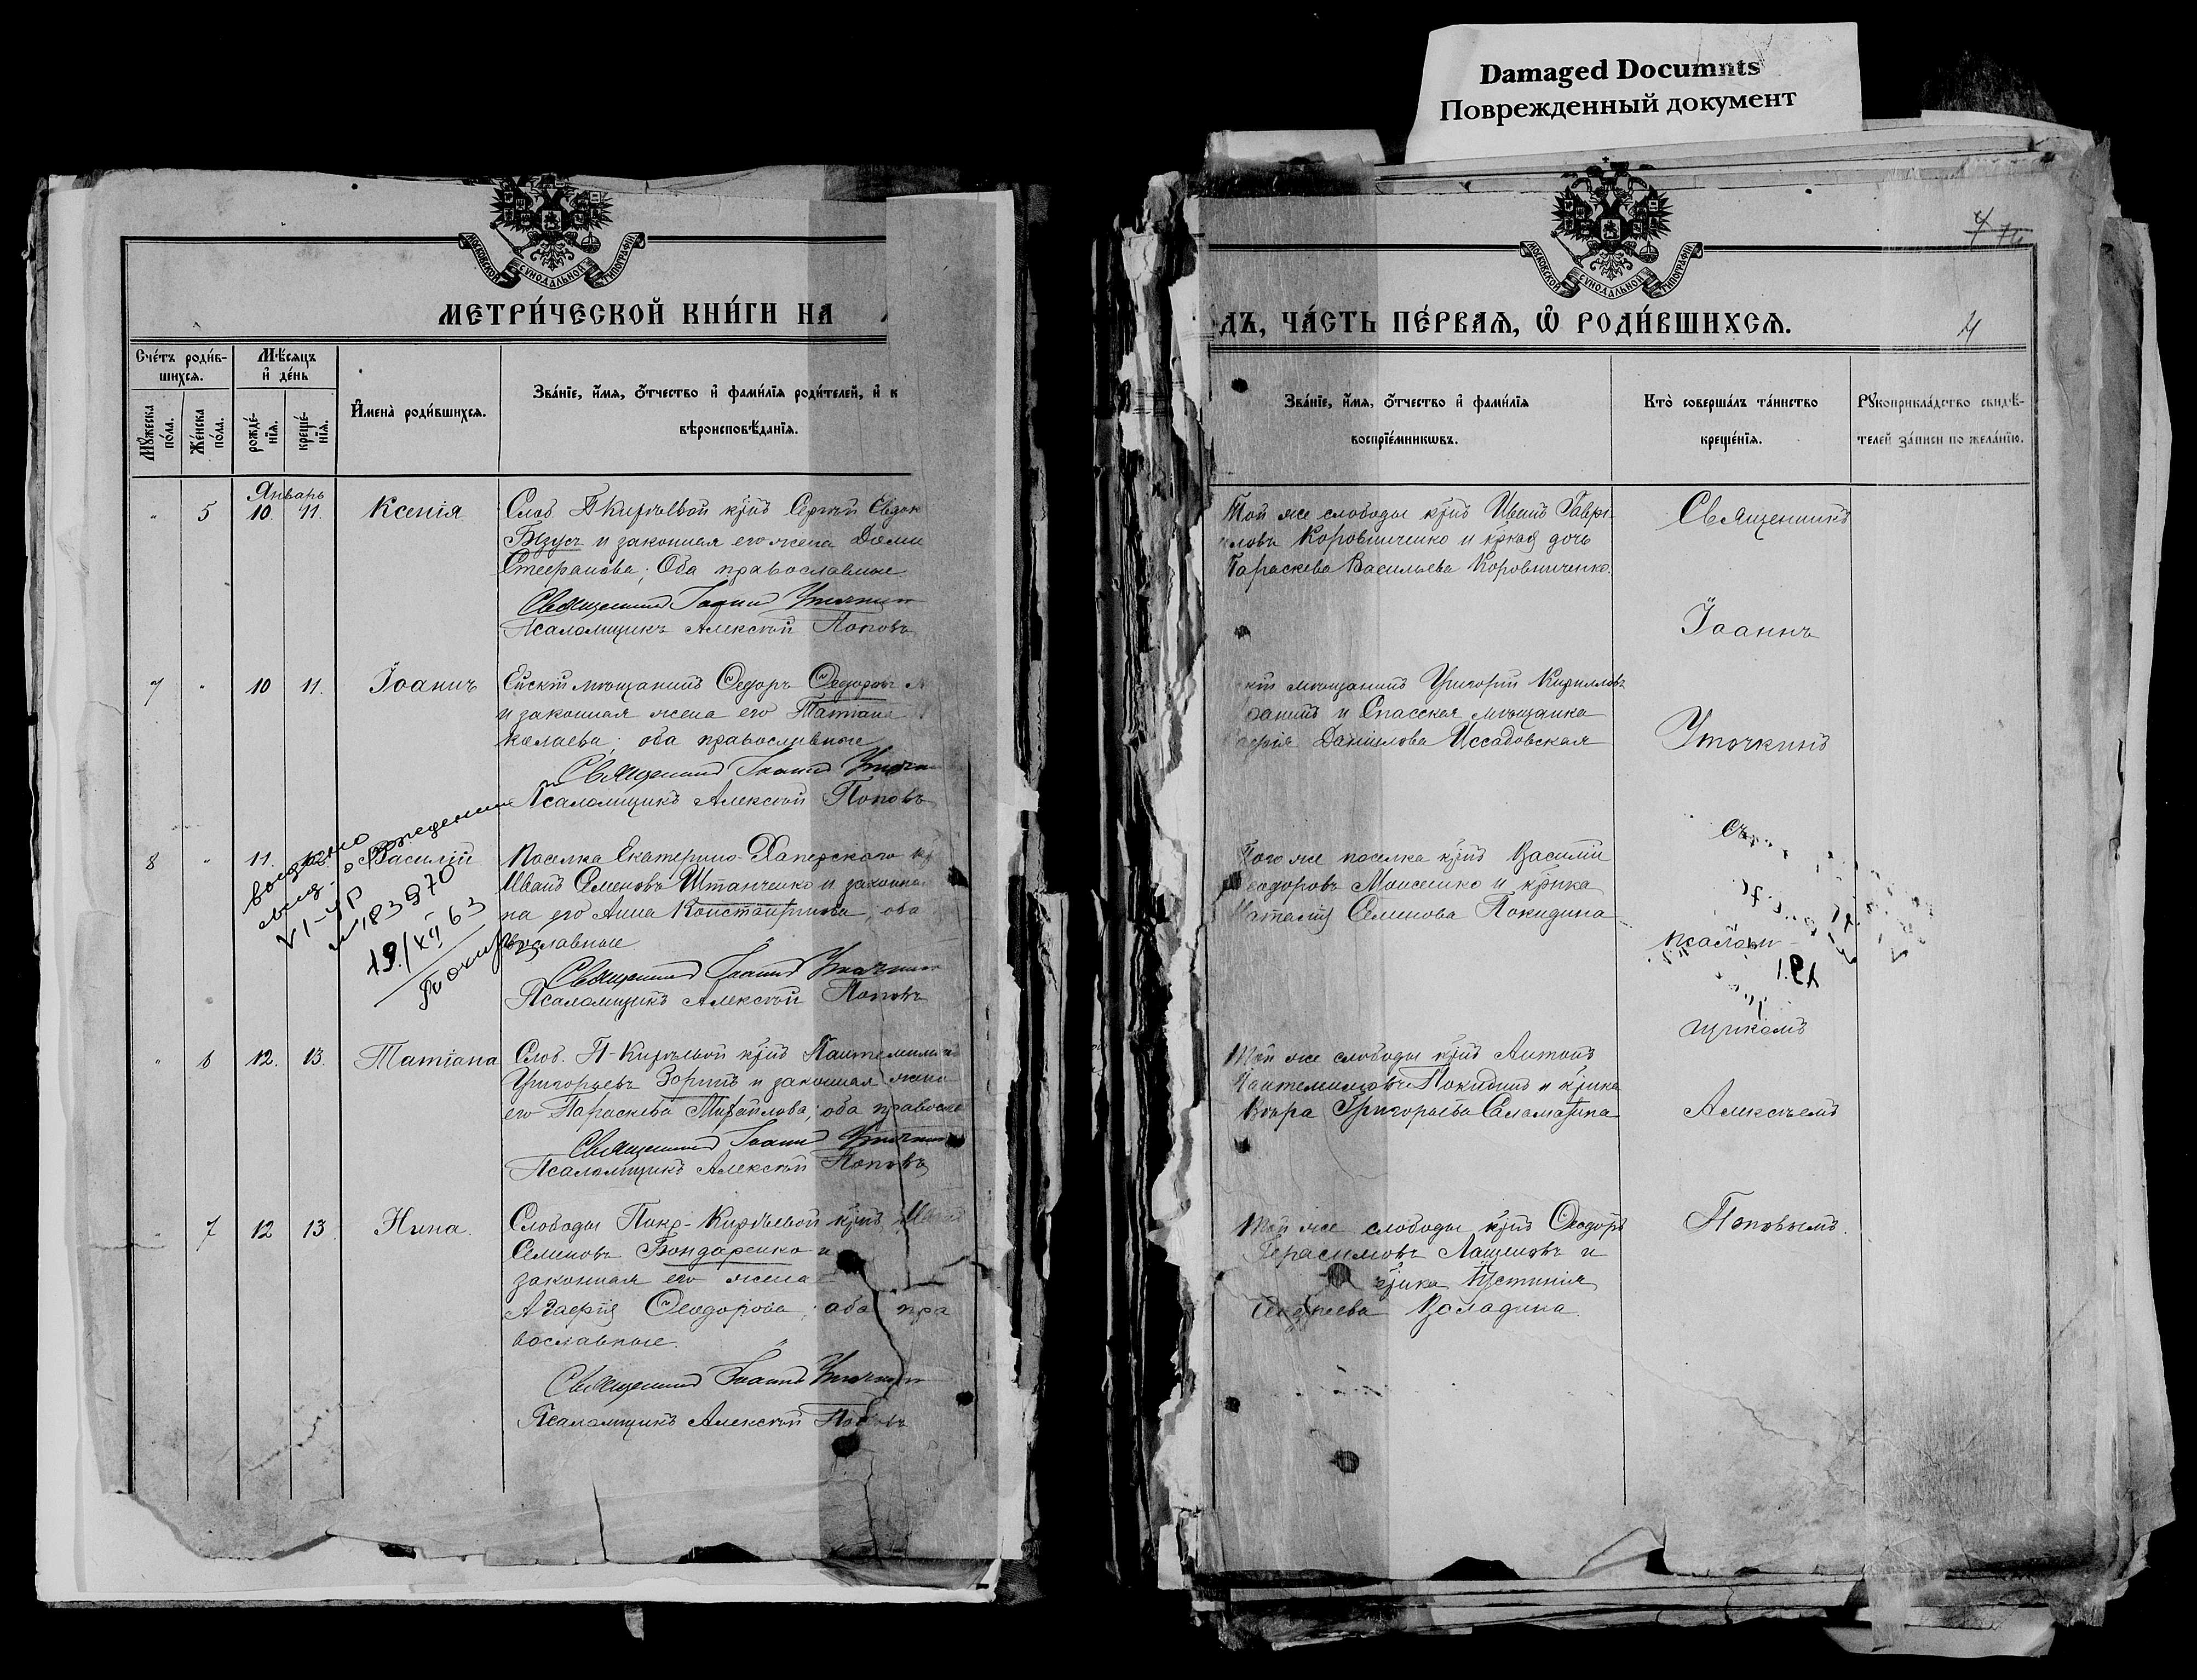 Damaged Documnts
Поврежденный документ
МОСКОВСКОЙ СѴНОДАЛЬНОЙ ТИПОГРАФІИ
МЕТРИ́ЧЕСКОЙ КНИ́ГИ НА
Сче́тъ роди́в-
шихсѧ.
Мѣ́сяцъ
и҆ де́нь
Мꙋ́жеска по́ла.
Же́нска по́ла.
рожде́-
нїѧ.
креще́-
нїѧ.
И҆мена̀ роди́вшихсѧ.
Зва́нїе, и҆́мѧ, ѻ҆́тчество и҆ фами́лїѧ роди́телей, и҆ к
вѣроисповѣ́данїѧ.
Январь
" 5 10. 11. Ксенія
Слоб. П Кирѣевой кр͠нъ Сергѣй Евдок
Бузусъ и законная его жена Доми
Стефанова; Оба православные
Священникъ Іоаннъ Уточкин
Псаломщикъ Алексѣй Поповъ
7 " 10 11. Іоаннъ
Ейскій мѣщанинъ Ѳедоръ Ѳедоровъ
и законная жена его Татіана
колаева; оба православные
Священникъ Іоаннъ Уточкин
Псаломщикъ Алексѣй Поповъ
8 " 11. 12. Василій
Поселка Екатерино-Хаперскаго кр
Иванъ Семеновъ Штанченко и законна
на его Анна Константинова; оба
вославные
Священникъ Іоаннъ Уточкин
Псаломщикъ Алексѣй Поповъ
выдано
свид. о рождении
VI-УР
№ 183970
19/XII 63
" 6 12. 13. Татіана
Слоб. П-Кирѣевой кр͠нъ Пантелимонъ
Григорьевъ Зоринъ и законная жена
его Параскева Михайлова; оба правосла
Священникъ Іоаннъ Уточкин
Псаломщикъ Алексѣй Поповъ
" 7 12 13. Нина.
Слободы Покр-Кирѣевой кр͠нъ Иванъ
Семеновъ Бондаренко и
законная его жена
Агафія Ѳеодорова; оба пра
вославные.
Священникъ Іоаннъ Уточкин
Псаломщикъ Алексѣй Поповъ
МОСКОВСКОЙ СѴНОДАЛЬНОЙ ТИПОГРАФІИ
ДЪ, ЧА́СТЬ ПЕ́РВАѦ, Ѽ РОДИ́ВШИХСѦ.
4
Зва́нїе, и҆́мѧ, ѻ҆́тчество и҆ фами́лїѧ
воспрїе́мникѡвъ.
Кто̀ соверша́лъ та́инство
креще́нїѧ.
Рꙋкоприкла́дство свидѣ́-
телей за́писи по жела́нїю.
Той же слободы кр͠нъ Иванъ Гаври
ловъ Коровниченко и кр͠ская дочь
Параскева Васильева Коровниченко.
кій мѣщанинъ Григорій Кирилловъ
и Спасская мѣщанка
Данилова Иссадовская
Того же поселка кр͠нъ Василій
Ѳеодоровъ Моисенко и кр͠нка
Наталія Семенова Покидина
Той же слободы кр͠нъ Антонъ
Пантелимоновъ Покидинъ и кр͠нка
Вѣра Григорьева Саламахина
Той же слободы кр͠нъ Ѳеодоръ
Герасимовъ Лащеновъ и
кр͠нка Устинія
Андреева Воладина.
Священникъ
Іоаннъ
Уточкинъ
съ
псалом-
щикомъ
Алексѣемъ
Поповымъ.